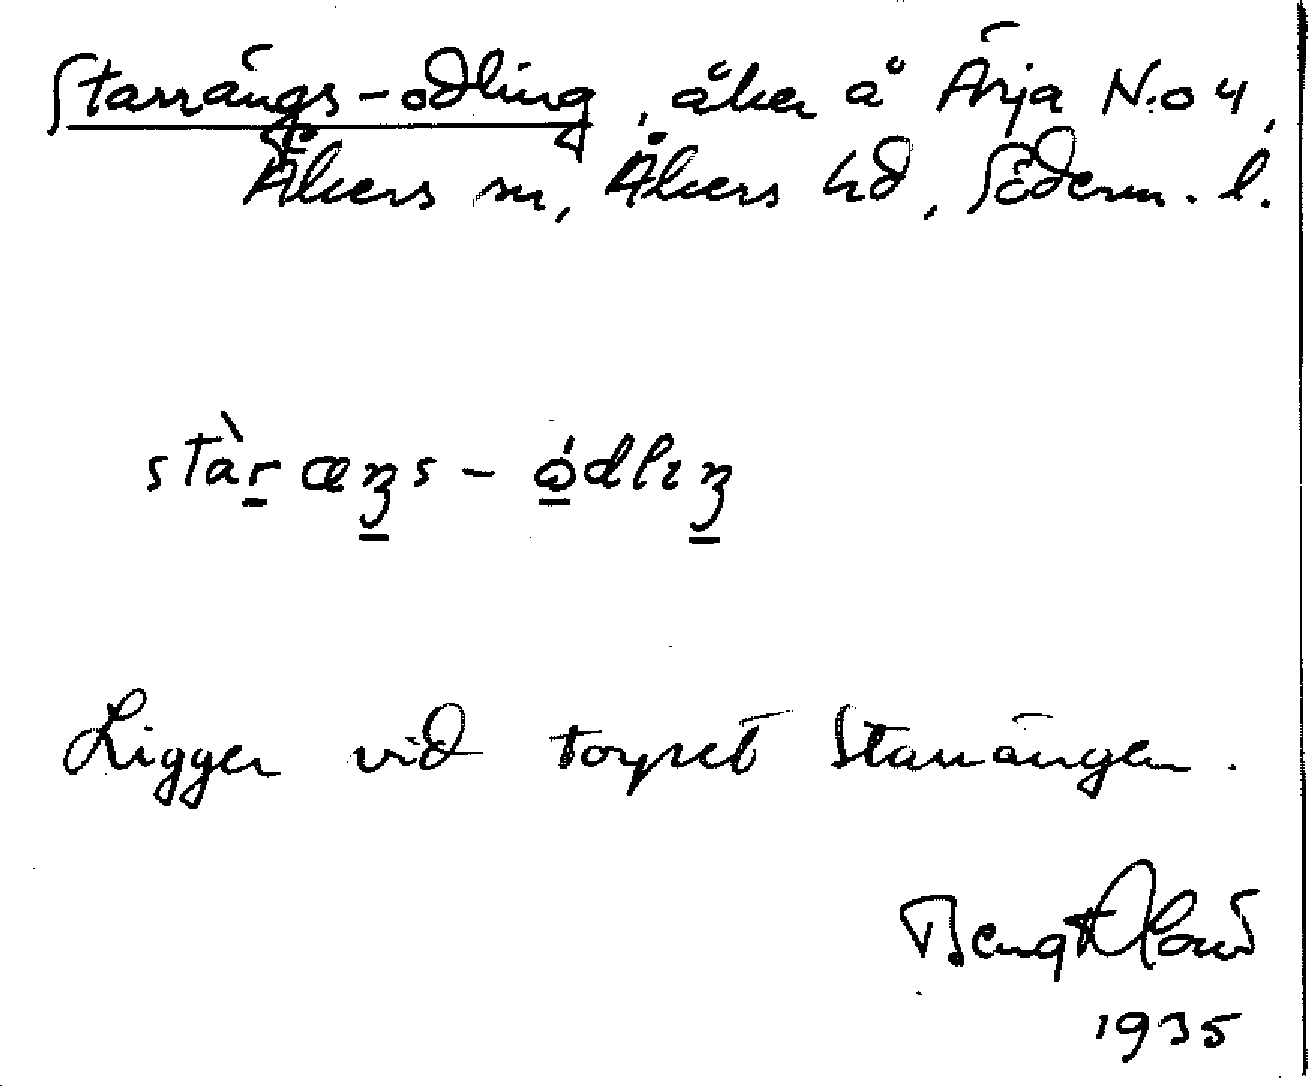 Starrängs-odling, åker å Ärja N:o 4,
Åkers sn, Åkers hd, Söderm. l.
stàr æŋs - ódlıŋ
Ligger vid torpet Starrängen.
Bengt
1935